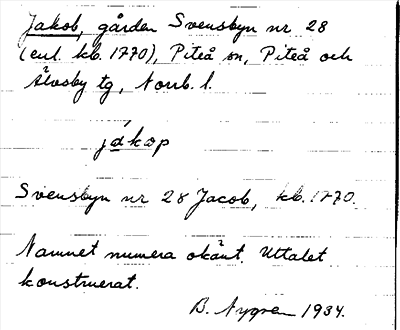 Jakob, gården Svensbyn nr 28
(enl. kb. 1770), Piteå sn, Piteå och
Älvsby tg, Norrb. l.
jákop
Svensbyn nr 28 Jacob, kb. 1770.
Namnet numera okänt. Uttalet
konstruerat.
B. Nygren 1934.